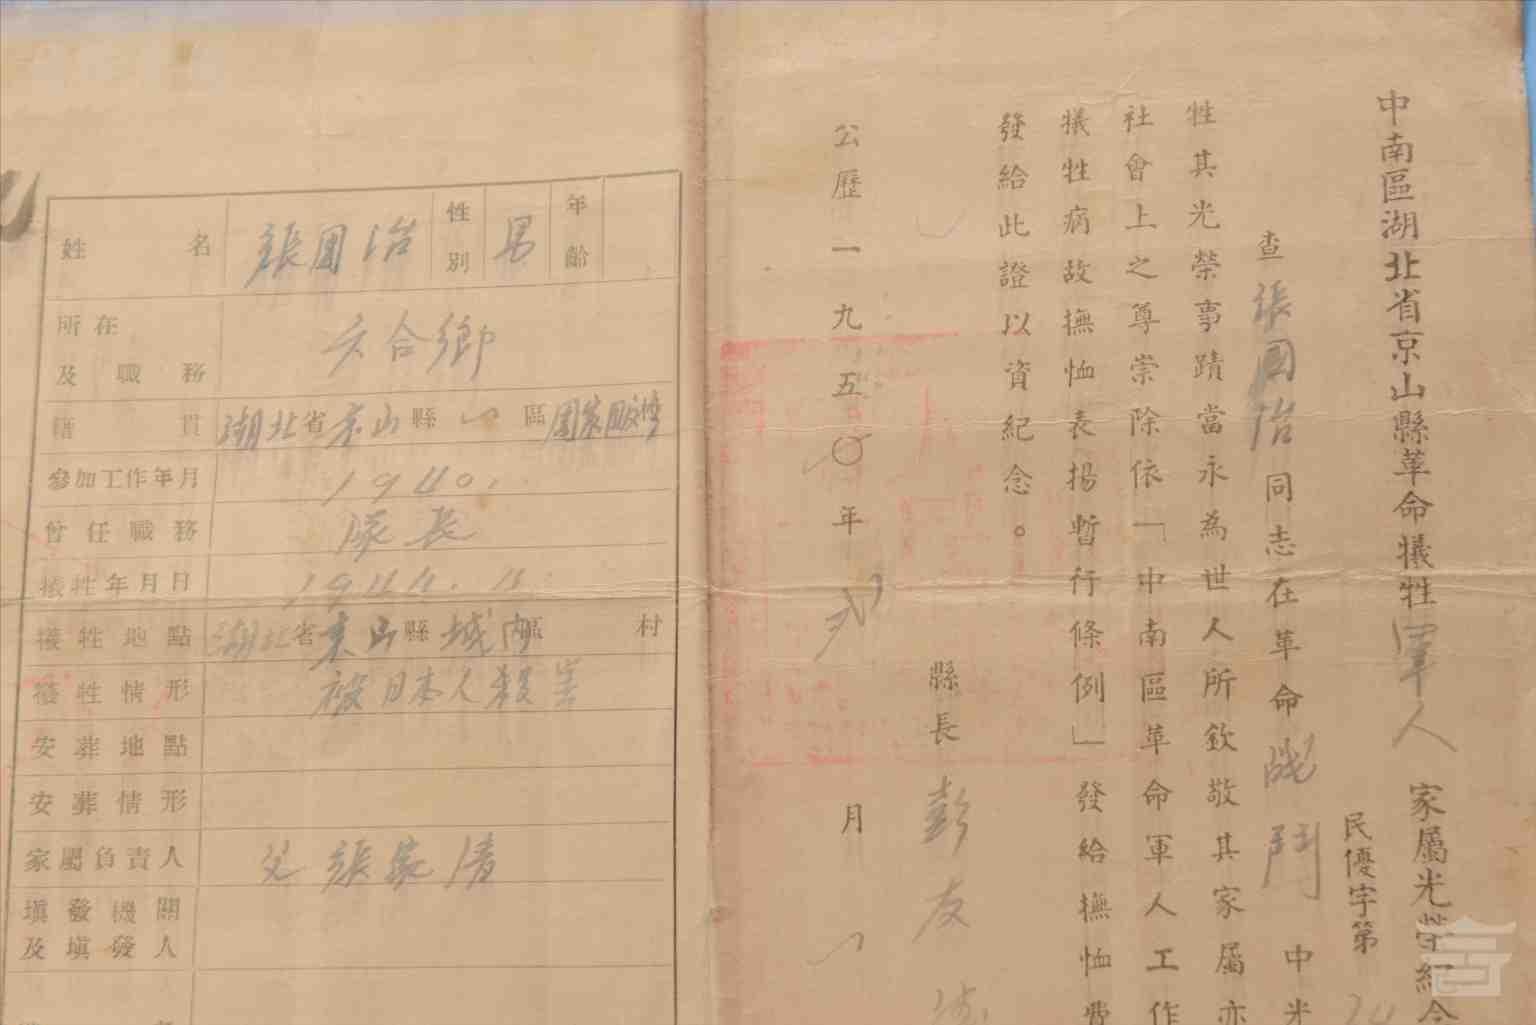 中南區湖北省京山縣革命犧牲軍人家屬光榮紀念
民優字第
查張國治同志在革命战鬥中光
牲其光榮事蹟當永為世人所欽敬其家屬亦
社會上之尊崇除依「中南區革命軍人工作
犧牲病故撫恤表揚暫行條例」發給撫恤費
發給此證以資紀念。
縣長彭友
公歷一九五〇年 月
姓名 張國治 性別 男 年齡
所在及職務 六合鄉
籍貫 湖北省京山縣一區
參加工作年月 1940.
曾任職務 隊長
犧牲年月日 1944.
犧牲地點 湖北省京山縣城内區 村
犧牲情形 被日本人殺害
安葬地點
安葬情形
家屬負責人 父張家清
填發機關及填發人